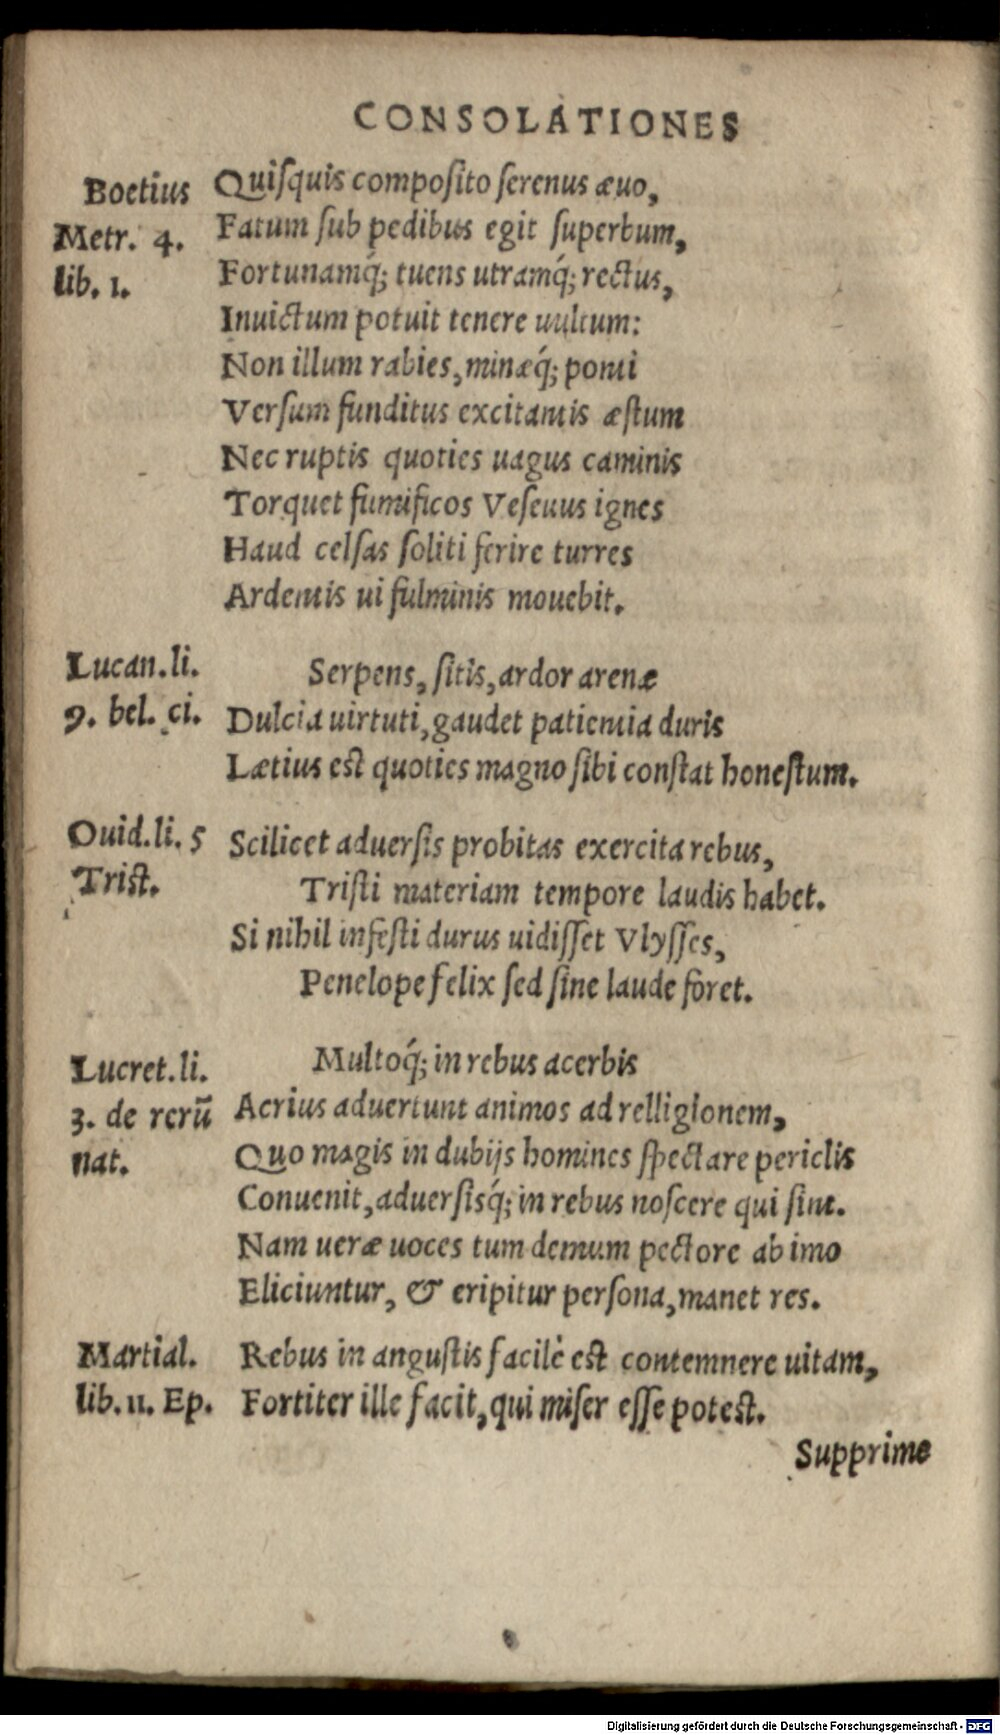 CONSOLATIONES
Boetius
Metr. 4.
lib. 1.
Quiſquis compoſito ſerenus æuo,
Fatum ſub pedibus egit ſuperbum,
Fortunamq́; tuens utramq́; rectus,
Inuictum potuit tenere uultum:
Non illum rabies, minæq́; ponti
Verſum funditus excitantis æſtum
Nec ruptis quoties uagus caminis
Torquet fumificos Veſeuus ignes
Haud celſas ſoliti ferire turres
Ardentis ui fulminis mouebit.
Lucan. li.
9. bel. ci.
Serpens, ſitis, ardor arenæ
Dulcia uirtuti, gaudet patientia duris
Lætius est quoties magno ſibi conſtat honeſtum.
Ouid. li. 5
Trist.
Scilicet aduerſis probitas exercita rebus,
Triſti materiam tempore laudis habet.
Si nihil infeſti durus uidiſſet Vlyſſes,
Penelope felix ſed ſine laude foret.
Lucret. li.
3. de rerū
nat.
Multoq́; in rebus acerbis
Acrius aduertunt animos ad relligionem,
Quo magis in dubijs homines ſpectare periclis
Conuenit, aduerſisq́; in rebus noſcere qui ſint.
Nam ueræ uoces tum demum pectore ab imo
Eliciuntur, & eripitur perſona, manet res.
Martial.
lib. 11. Ep.
Rebus in anguſtis facilè est contemnere uitam,
Fortiter ille facit, qui miſer eſſe potest.
Supprime
Digitalisierung gefördert durch die Deutsche Forschungsgemeinschaft - DFG